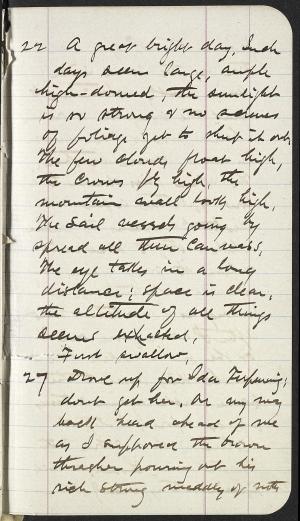 22 A great bright day. Such
days seem large, ample
high-domed, the sunlight
is so strong & no screens
of foliage yet to shut it out.
The few clouds float high,
the crows fly high, the
mountain wall looks high.
The sail vessels going by
spread all their canvass;
The eye takes in a long
distance; space is clear;
the altitude of all things
seems exhalted.
First swallow.
27 Drove up for Ida
dont get her. On my way
back heard ahead of me
as I supposed the brown
thrasher pouring out his
rich strong medley of notes